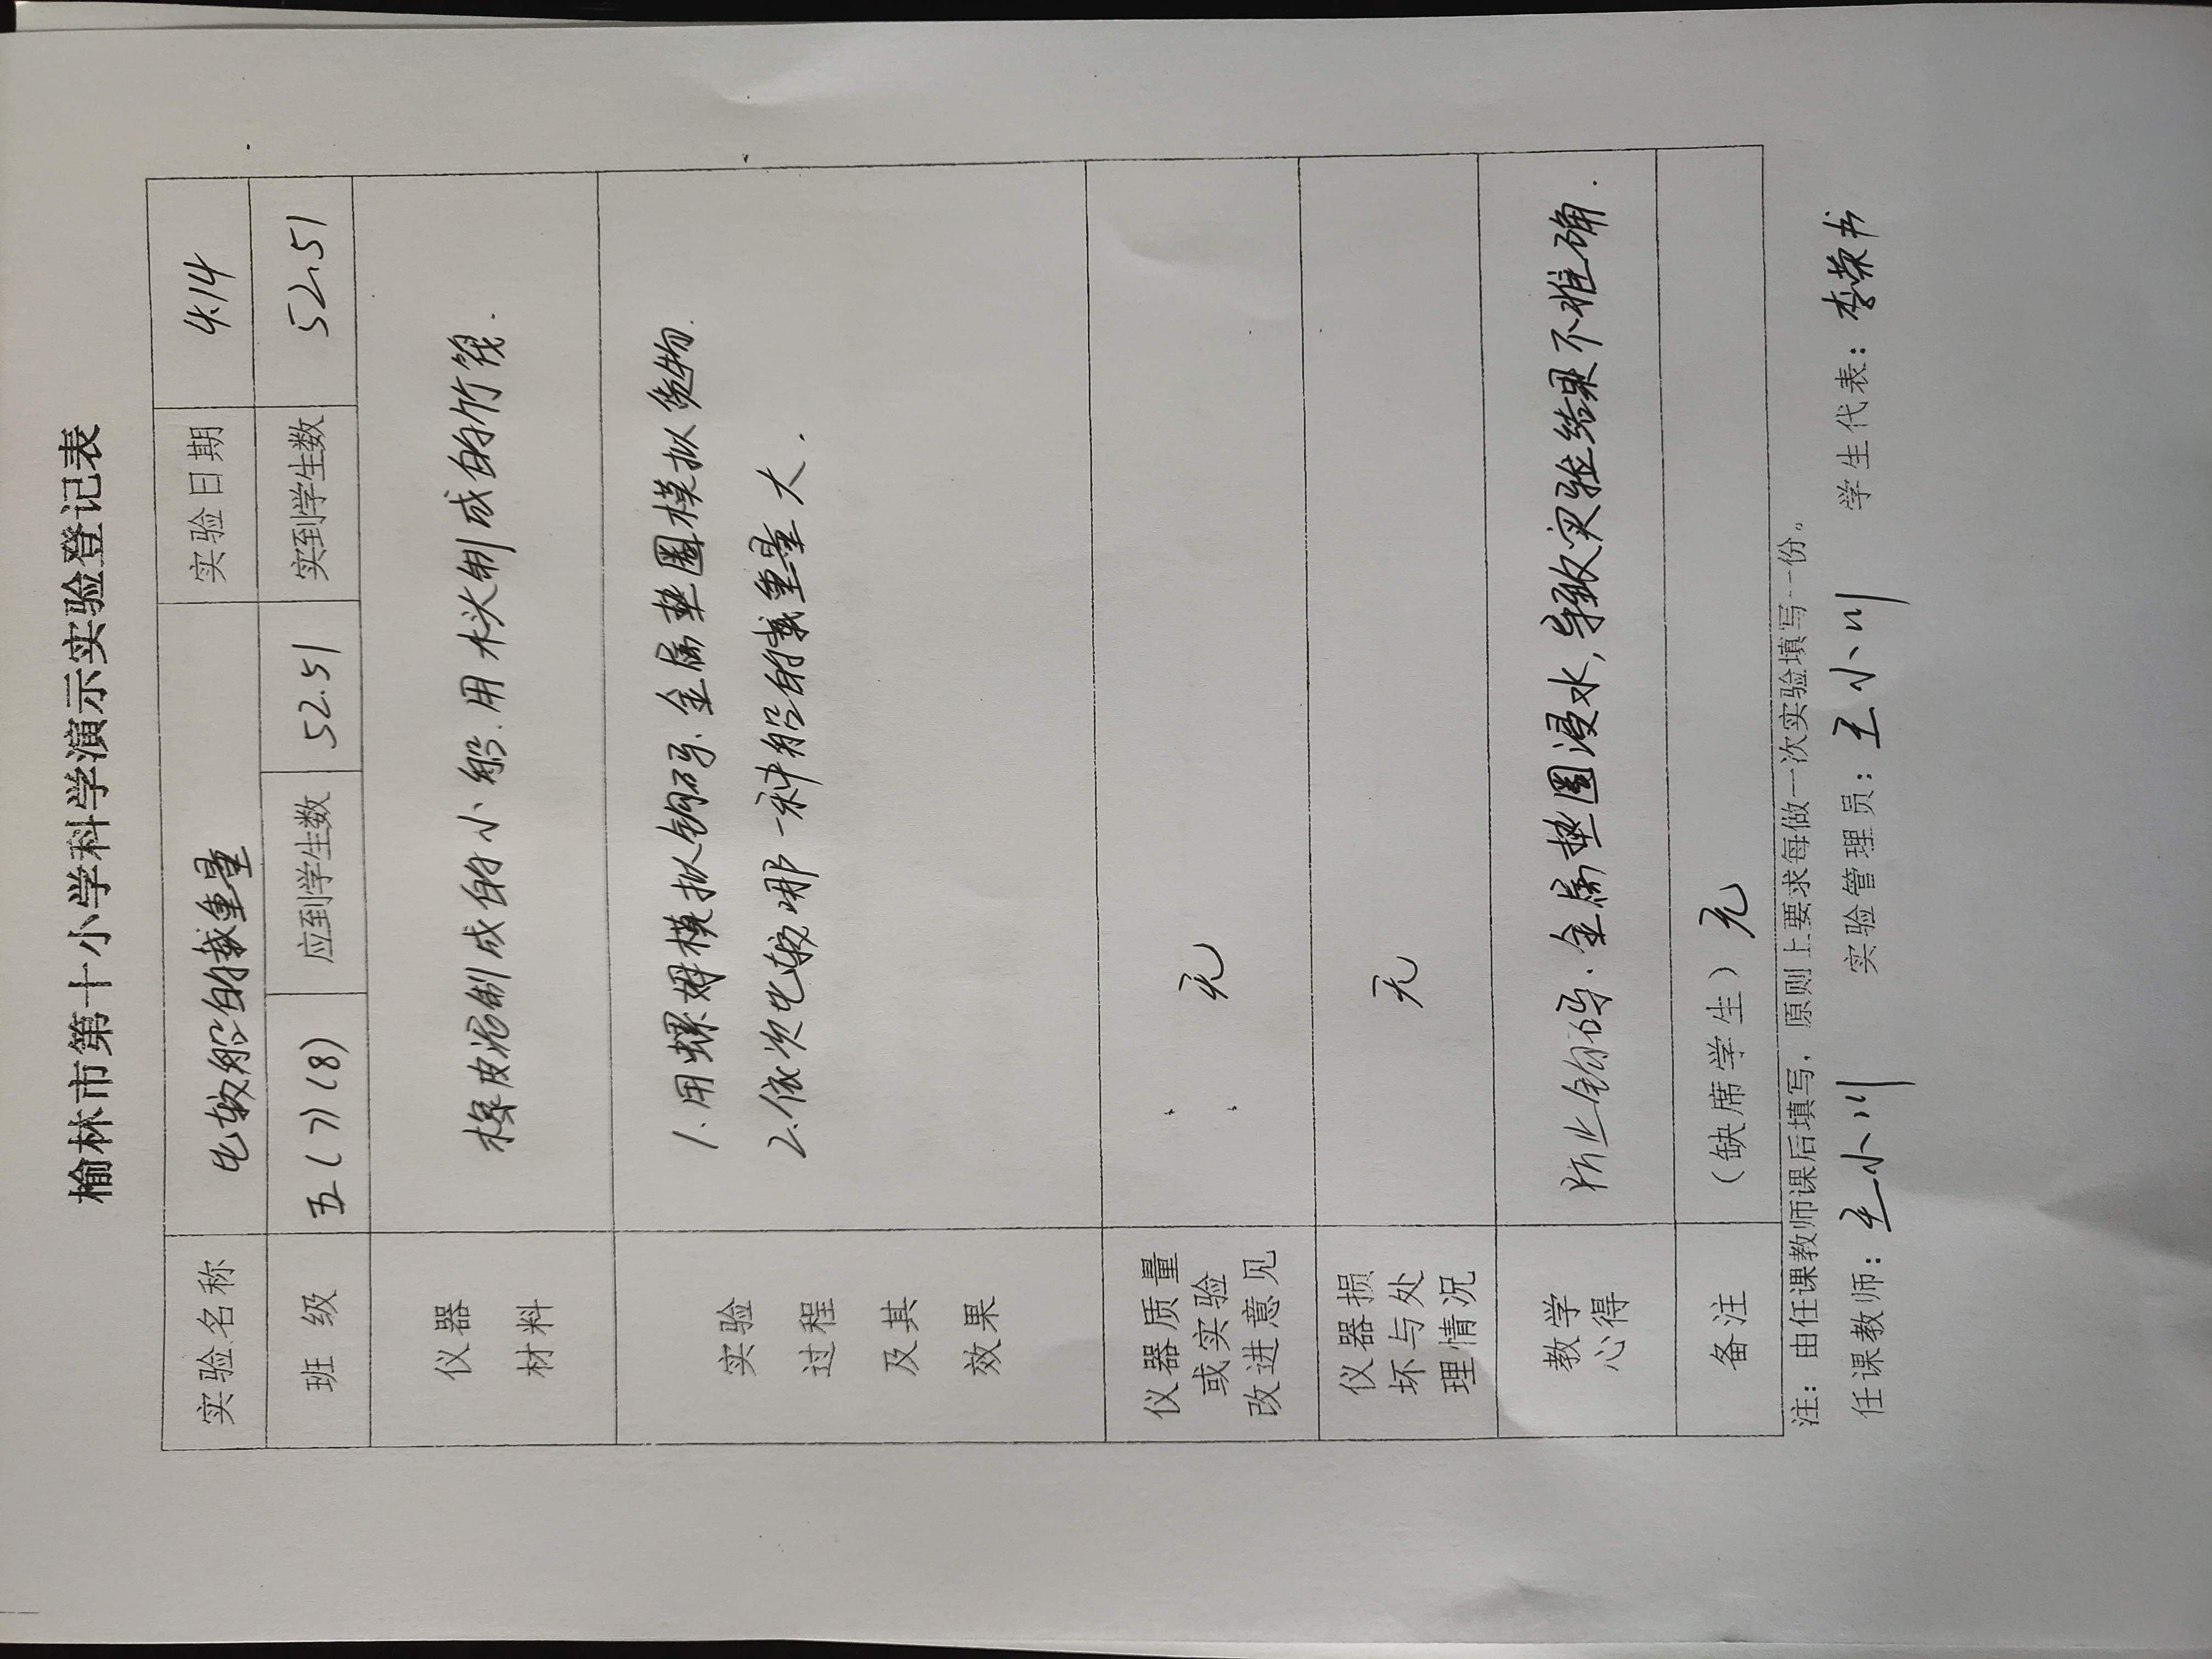 榆林市第十小学科学演示实验登记表
实验名称 比较船的载重量 实验日期 4.14
班 级 五(7)(8) 应到学生数 52.51 实到学生数 52.51
仪器
材料
橡皮泥制成的小船.用木头制成的竹筏.
实验
过程
及其
效果
1.用螺姆模拟钩码.金属垫圈模拟货物.
2.依次比较哪一种船的载重量大.
仪器质量
或实验
改进意见
无
仪器损
坏与处
理情况
无
教学
心得
防止钩码.金属垫圈浸水,导致实验结果不准确.
备注 (缺席学生)无
注：由任课教师课后填写，原则上要求每做一次实验填写一份。
任课教师：王小川 实验管理员：王小川 学生代表：李荣书